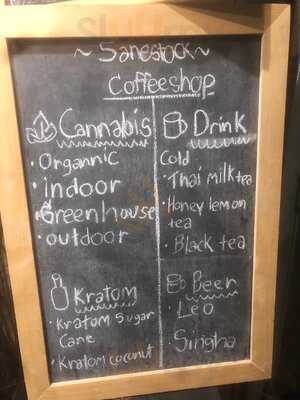 ~ Sanestock ~
Coffeeshop
Cannabis
· Organnic
· indoor
· Greenhouse
· outdoor
Drink
Cold
· Thai milk tea
· Honey lemon
tea
· Black tea
Kratom
· Kratom Sugar
Cane
· Kratom coconut
Beer
· Leo
· Singha